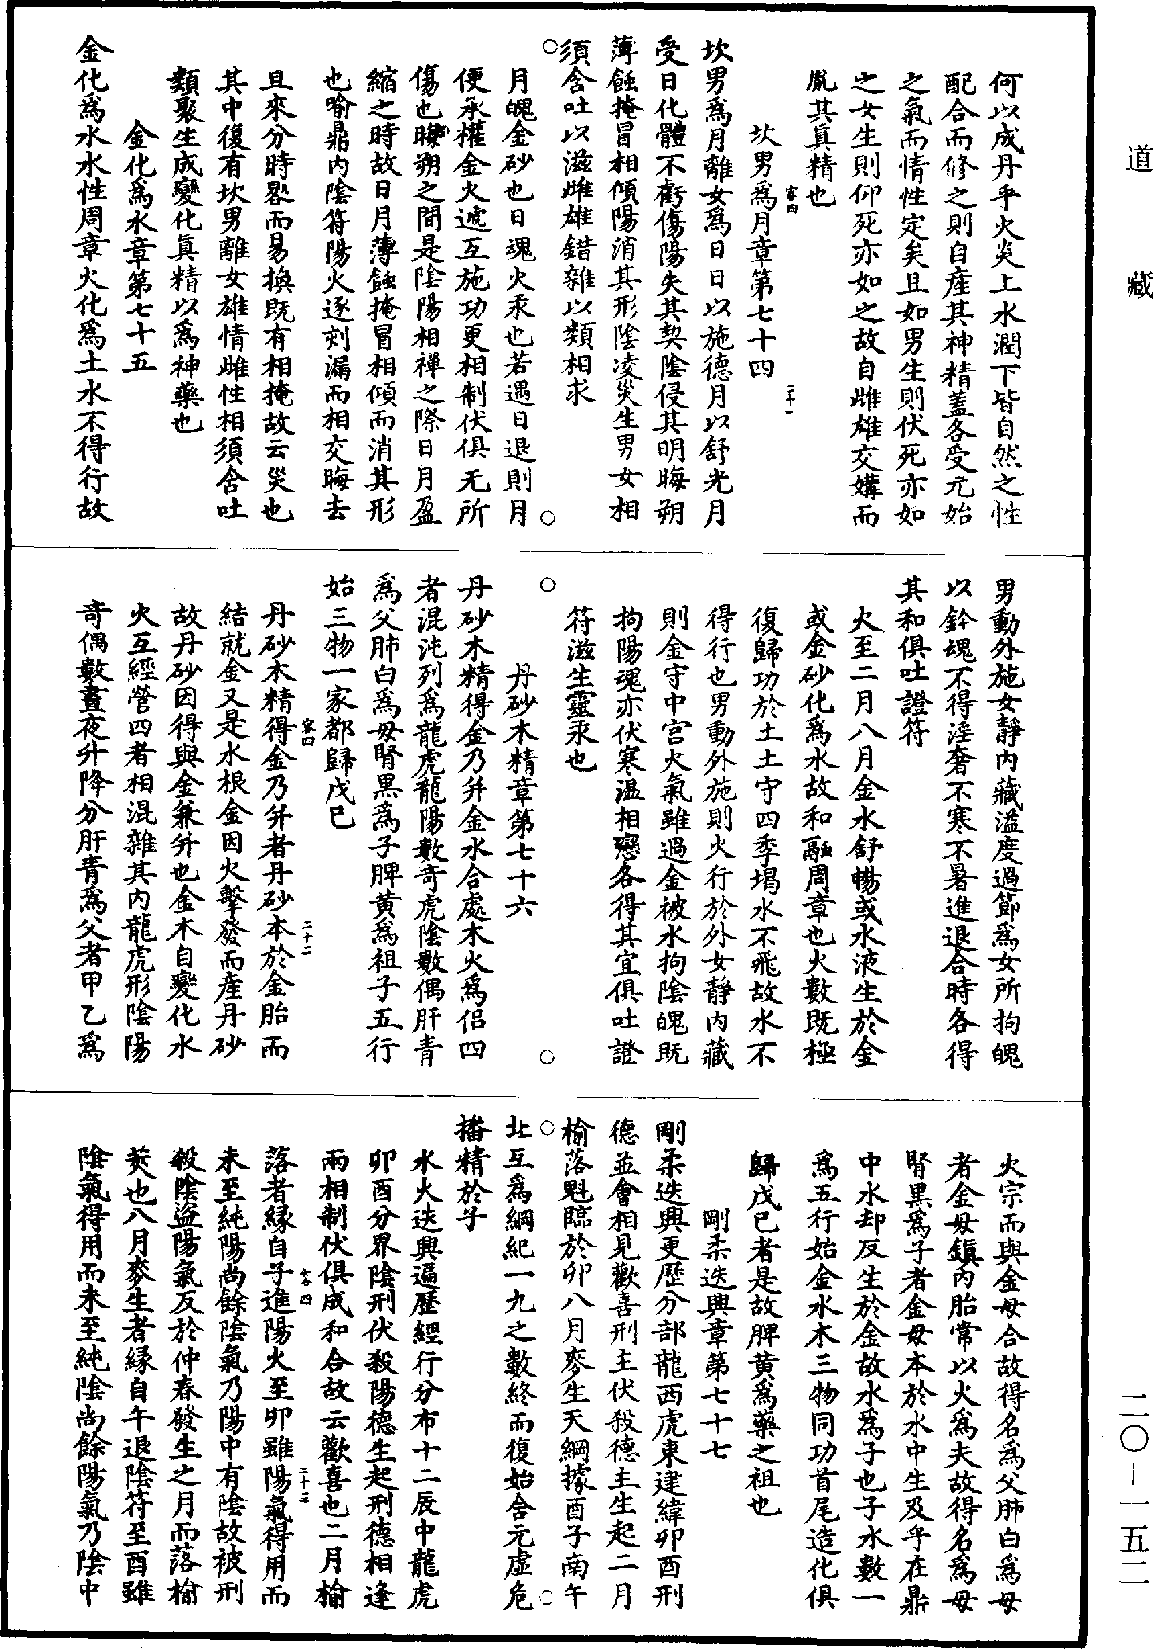 道藏
何以成丹乎火炎上水潤下皆自然之性
配合而修之則自産其神精蓋各受元始
之氣而情性定矣且如男生則伏死亦如
之女生則仰死亦如之故自雌雄交媾而
胤其真精也
坎男爲月章第七十四
坎男爲月離女爲日日以施德月以舒光月
受日化體不虧傷陽失其契陰侵其明晦朔
薄蝕掩冒相傾陽消其形陰凌災生男女相
須含吐以滋雌雄錯雜以類相求
月魄金砂也日魂火汞也若遇日退則月
便承權金火遞互施功更相制伏俱无所
傷也晦朔之間是陰陽相禪之際日月盈
縮之時故日月薄蝕掩冒相傾而消其形
也喻鼎内陰符陽火逐刻漏而相交晦去
且來分時晷而易換既有相掩故云災也
其中復有坎男離女雄情雌性相須含吐
類聚生成變化真精以爲神藥也
金化爲水章第七十五
金化爲水水性周章火化爲土水不得行故
男動外施女靜内藏溢度過節爲女所拘魄
以鈐魂不得淫奢不寒不暑進退合時各得
其和俱吐證符
火至二月八月金水舒暢或水液生於金
或金砂化爲水故和融周章也火數既極
復歸功於土土守四季堨水不飛故水不
得行也男動外施則火行於外女靜内藏
則金守中宫火氣雖過金被水拘陰魄既
拘陽魂亦伏寒温相戀各得其宜俱吐證
符滋生靈汞也
丹砂木精章第七十六
丹砂木精得金乃并金水合處木火爲侣四
者混沌列爲龍虎龍陽數奇虎陰數偶肝青
爲父肺白爲母腎黑爲子脾黄爲祖子五行
始三物一家都歸戊己
丹砂木精得金乃并者丹砂本於金胎而
結就金又是水根金因火擊發而産丹砂
故丹砂因得與金兼并也金木自變化水
火互經營四者相混雜其内龍虎形陰陽
奇偶數晝夜升降分肝青爲父者甲乙爲
火宗而與金母合故得名爲父肺白爲母
者金母鎮内胎常以火爲夫故得名爲母
腎黑爲子者金母本於水中生及乎在鼎
中水却反生於金故水爲子也子水數一
爲五行始金水木三物同功首尾造化俱
歸戊己者是故脾黄爲藥之祖也
剛柔迭興章第七十七
剛柔迭興更歷分部龍西虎東建緯卯酉刑
德並會相見歡喜刑主伏殺德主生起二月
榆落魁臨於卯八月麥生天綱據酉子南午
北互爲綱紀一九之數終而復始含元虚危
播精於子
水火迭興遍歷經行分布十二辰中龍虎
卯酉分界陰刑伏殺陽德生起刑德相逢
兩相制伏俱成和合故云歡喜也二月榆
落者緣自子進陽火至卯雖陽氣得用而
未至純陽尚餘陰氣乃陽中有陰故被刑
殺陰盗陽氣反於仲春發生之月而落榆
莢也八月麥生者緣自午退陰符至酉雖
陰氣得用而未至純陰尚餘陽氣乃陰中
二〇—一五二